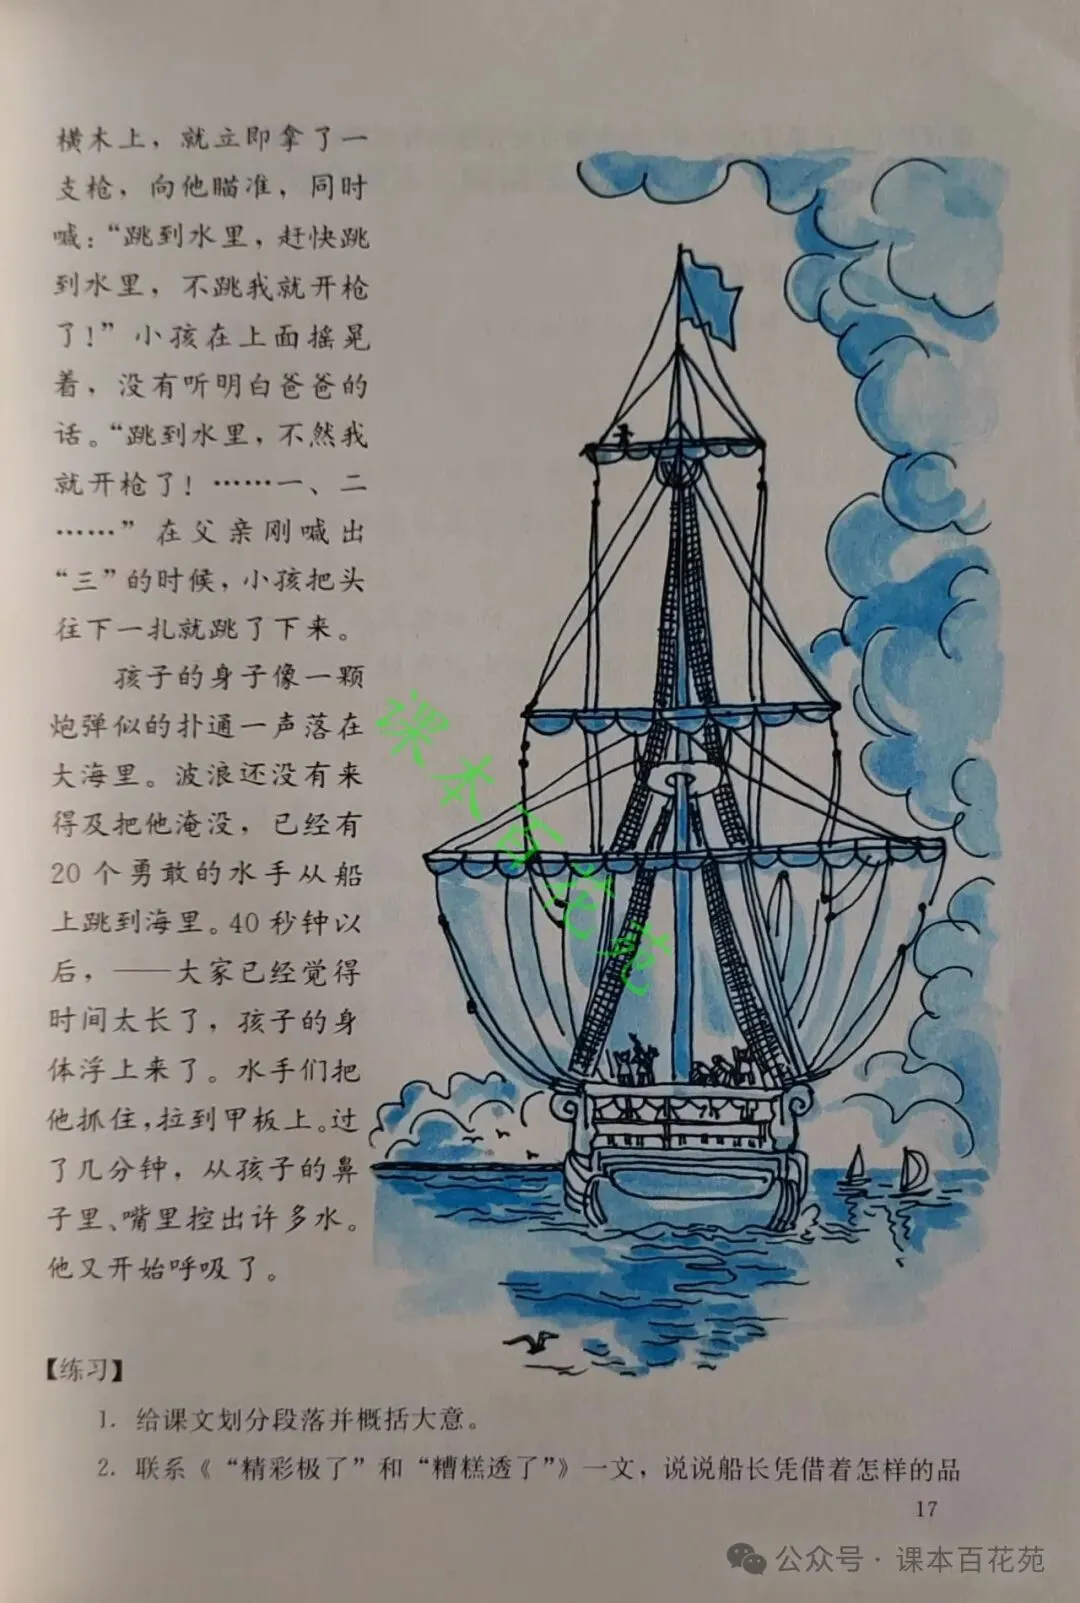 横木上，就立即拿了一
支枪，向他瞄准，同时
喊：“跳到水里，赶快跳
到水里，不跳我就开枪
了！”小孩在上面摇晃
着，没有听明白爸爸的
话。“跳到水里，不然我
就开枪了！……一、二
……”在父亲刚喊出
“三”的时候，小孩把头
往下一扎就跳了下来。
孩子的身子像一颗
炮弹似的扑通一声落在
大海里。波浪还没有来
得及把他淹没，已经有
20个勇敢的水手从船
上跳到海里。40秒钟以
后，——大家已经觉得
时间太长了，孩子的身
体浮上来了。水手们把
他抓住，拉到甲板上。过
了几分钟，从孩子的鼻
子里、嘴里控出许多水。
他又开始呼吸了。
课本百花苑
【练习】
1. 给课文划分段落并概括大意。
2. 联系《“精彩极了”和“糟糕透了”》一文，说说船长凭借着怎样的品
17
公众号·课本百花苑